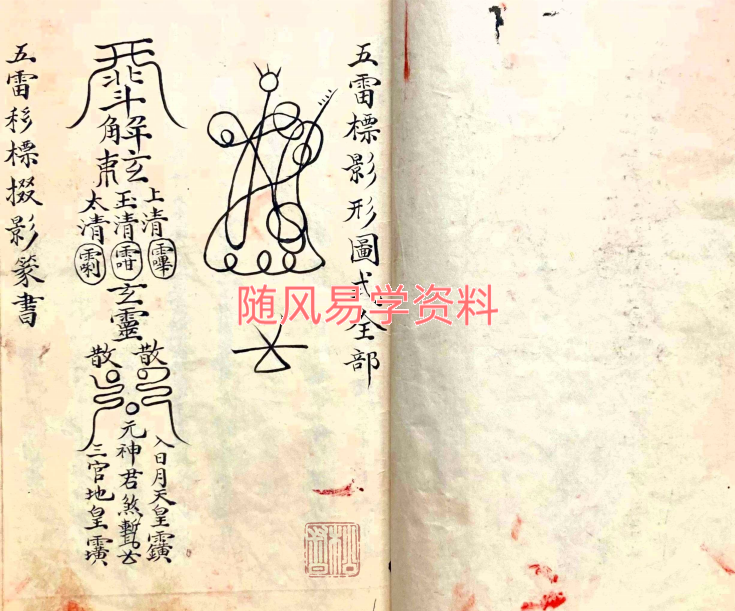 五雷標影形圖式全部
斗
解
東玄
上清
玉清
太清
玄靈
散
散
入日月天皇
元神君煞暫去
三官地皇
五雷移標掇影篆書
随风易学资料